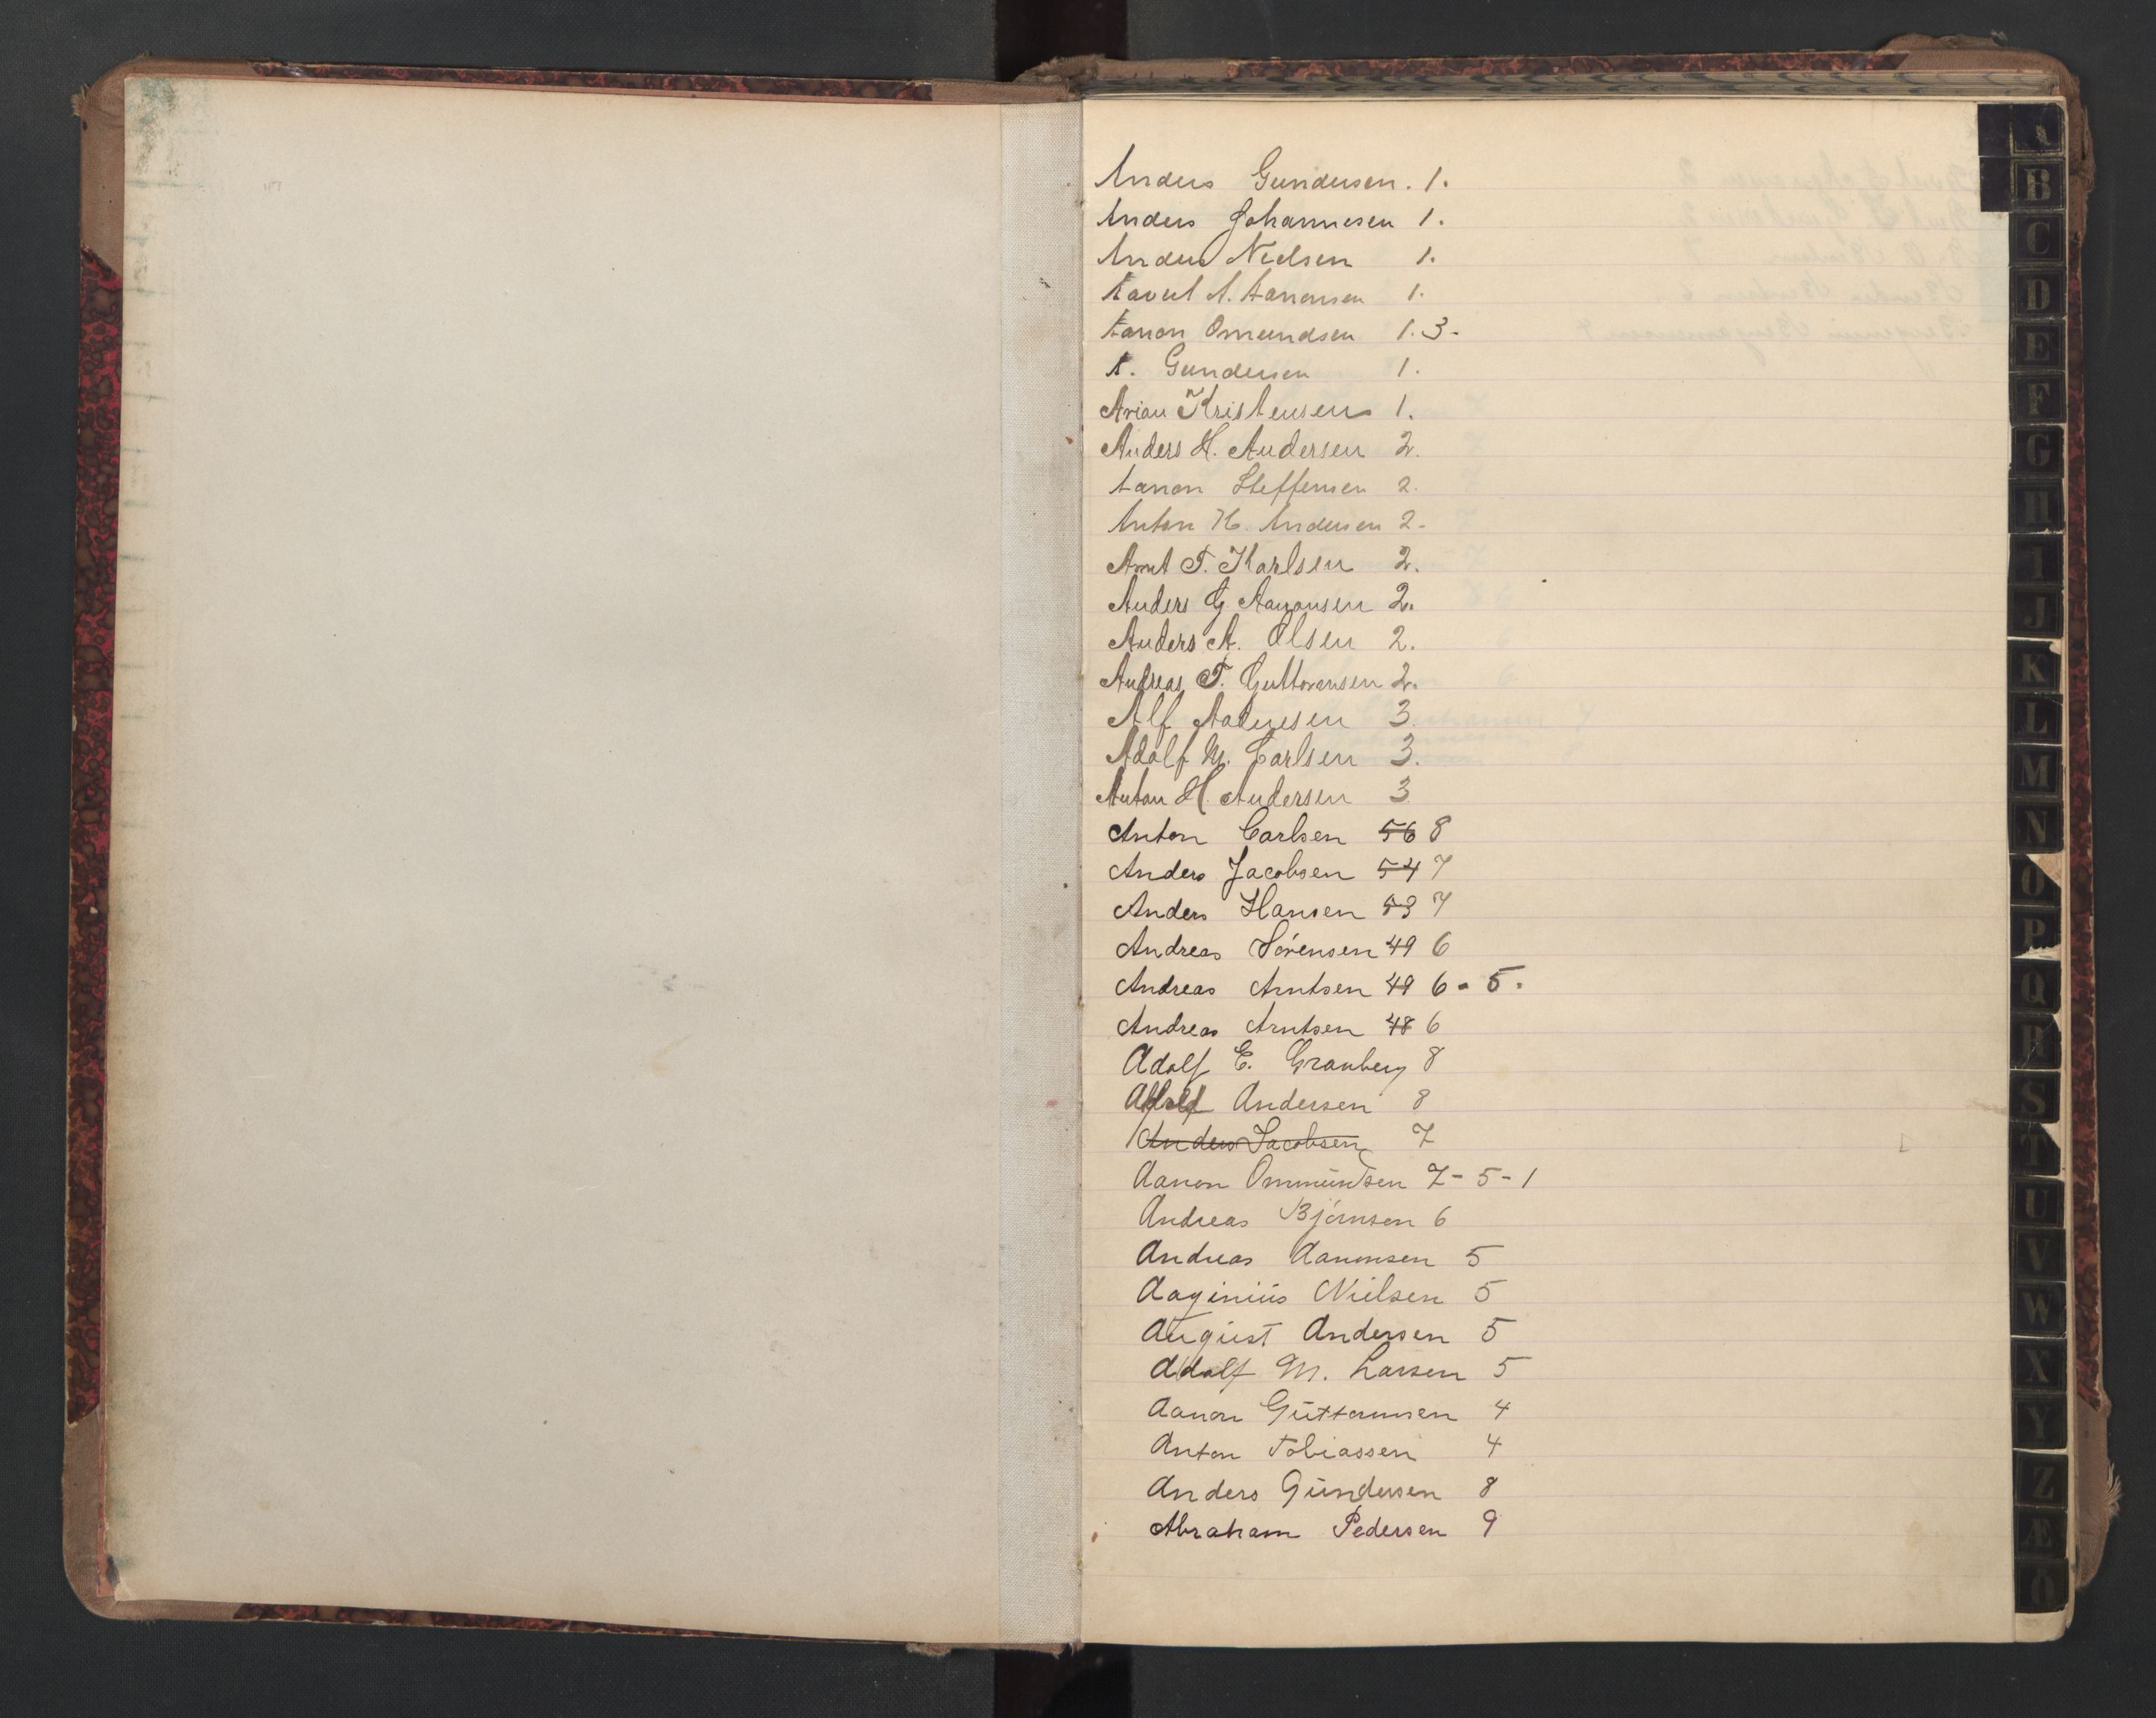 Anders Gundersen. 1.
Anders Johannesen 1.
Anders Nielsen 1.
A. Aanonsen 1.
Aanon Omundsen 1. 3-
A. Gundersen 1.
Kristensen 1.
Anders H. Andersen 2.
Aanon Steffensen 2.
Anton H. Andersen 2-
Arnt T. Karlsen 2.
Anders G Aanonsen 2.
Anders A. Olsen 2.
Andreas T. Guttormsen 2.
Alf 3.
Adolf M. Carlsen 3.
Anton H. Andersen 3
Anton Carlsen 56 8
Anders Jacobsen 54 7
Anders Hansen 53 7
Andreas Sörensen 49 6
Andreas Arntsen 49 6 - 5.
Andreas Arntsen 48 6
Adolf E. Granberg 8
Andersen 8
Anders Jacobsen 7
Aanon Ommundsen 7-5-1
Andreas Björnsen 6
Andreas Aanonsen 5
Nielsen 5
August Andersen 5
Adolf M. Larsen 5
Aanon Guttormsen 4
Anton Tobiassen 4
Anders Gundersen 8
Abraham Pedersen 9
A
B
C
D
E
F
G
H
I
J
K
L
M
N
O
P
Q
R
S
T
U
V
W
X
Y
Z
Æ
Ö